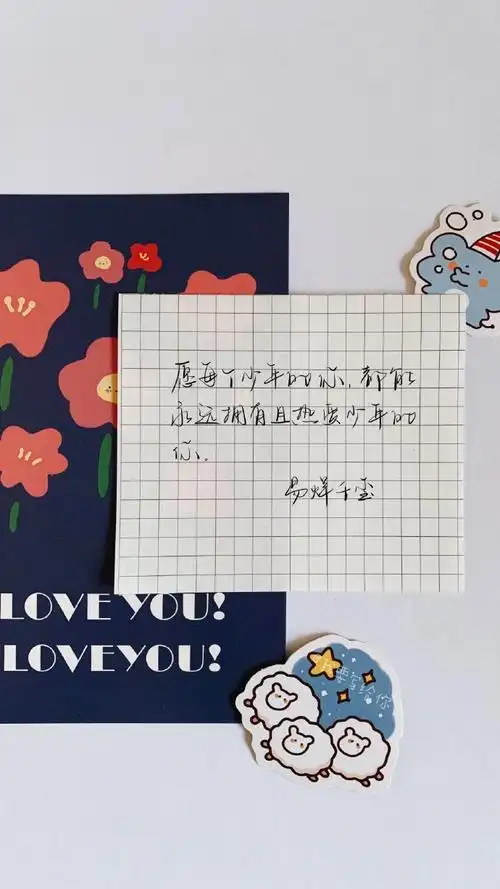 愿每个少年的你，都能
永远拥有且热爱少年的
你。
易烊千玺
LOVE YOU!
LOVEYOU!